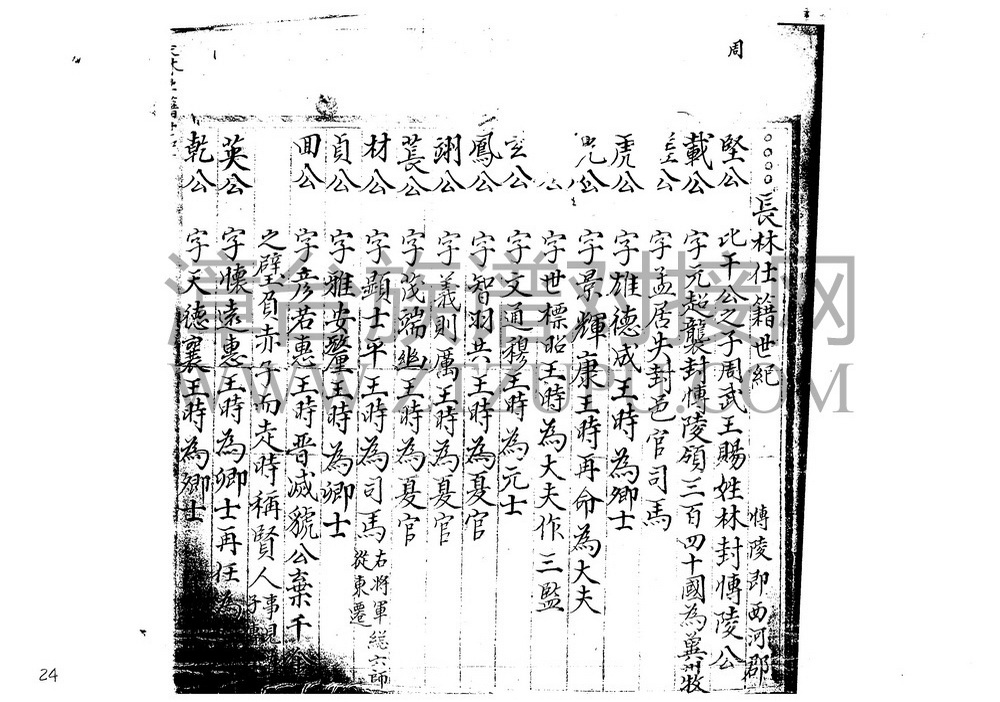 周
長林仕籍世紀 博陵即西河郡
堅公 比干公之子周武王賜姓林封博陵公
載公 字元超襲封博陵領三百四十國為冀州牧
公 字孟居失封邑官司馬
虎公 字雄德成王時為卿士
公 字景輝康王時再命為大夫
公 字世標昭王時為大夫作三監
公 字文通穆王時為元士
鳳公 字智羽共王時為夏官
翊公 字義則厲王時為夏官
萇公 字茂端幽王時為夏官
材公 字顯士平王時為司馬右將軍總六師從東遷
貞公 字雅安釐王時為卿士
回公 字彥若惠王時晉滅虢公棄千金
之璧負赤子而走時稱賢人事
英公 字懷遠惠王時為卿士再任為
乾公 字天德襄王時為卿士
漳台族谱对接网
WWW.ZTZUPU.COM
24